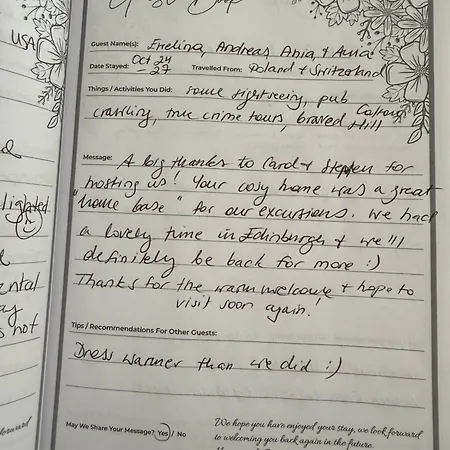 Guest Book
USA
Guest Name(s): Evelina, Andreas, Ania, & Ania
Date Stayed: Oct 24 - 27 Travelled From: Poland & Switzerland
Things / Activities You Did: some sightseeing, pub
crawling, true crime tours, braved Calton
Hill
Message: A big thanks to Carol & Stephen for
hosting us! Your cosy home was a great
"home base" for our excursions. We had
a lovely time in Edinburgh & we'll
definitely be back for more :)
Thanks for the warm welcome & hope to
visit soon again!
Tips / Recommendations For Other Guests:
Dress warmer than we did :)
May We Share Your Message? Yes / No
We hope you have enjoyed your stay, we look forward
to welcoming you back again in the future.